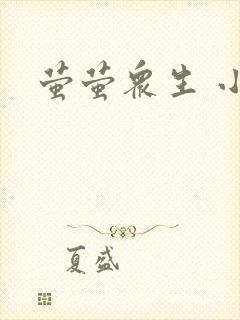 萤萤众生 小
夏盛